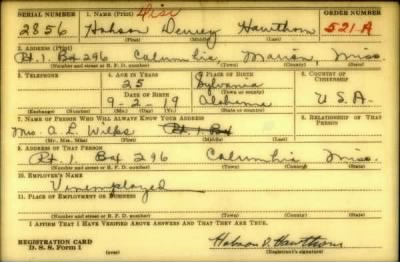 SERIAL NUMBER 1. NAME (Print) ORDER NUMBER
2856 Hobson Dewey Hawthorn 521-A
(First) (Middle) (Last)
2. ADDRESS (Print)
Rt. 1 Box 296 Columbia, Marion, Miss.
(Number and street or R. F. D. number) (Town) (County) (State)
3. TELEPHONE 4. AGE IN YEARS 5. PLACE OF BIRTH 6. COUNTRY OF CITIZENSHIP
25 Sylvania
DATE OF BIRTH (Town or county)
9-2-19 Alabama U S A
(Exchange) (Number) (Mo.) (Day) (Yr.) (State or country)
7. NAME OF PERSON WHO WILL ALWAYS KNOW YOUR ADDRESS 8. RELATIONSHIP OF THAT PERSON
Mrs. A. L. Wilks Rt. 1 Box
(Mr., Mrs., Miss) (First) (Middle) (Last)
9. ADDRESS OF THAT PERSON
Rt. 1. Box 296 Columbia Miss.
(Number and street or R. F. D. number) (Town) (County) (State)
10. EMPLOYER'S NAME
Unemployed
11. PLACE OF EMPLOYMENT OR BUSINESS
(Number and street or R. F. D. number) (Town) (County) (State)
I AFFIRM THAT I HAVE VERIFIED ABOVE ANSWERS AND THAT THEY ARE TRUE.
REGISTRATION CARD
D. S. S. Form 1 (over) Hobson D. Hawthorn
(Registrant's signature)